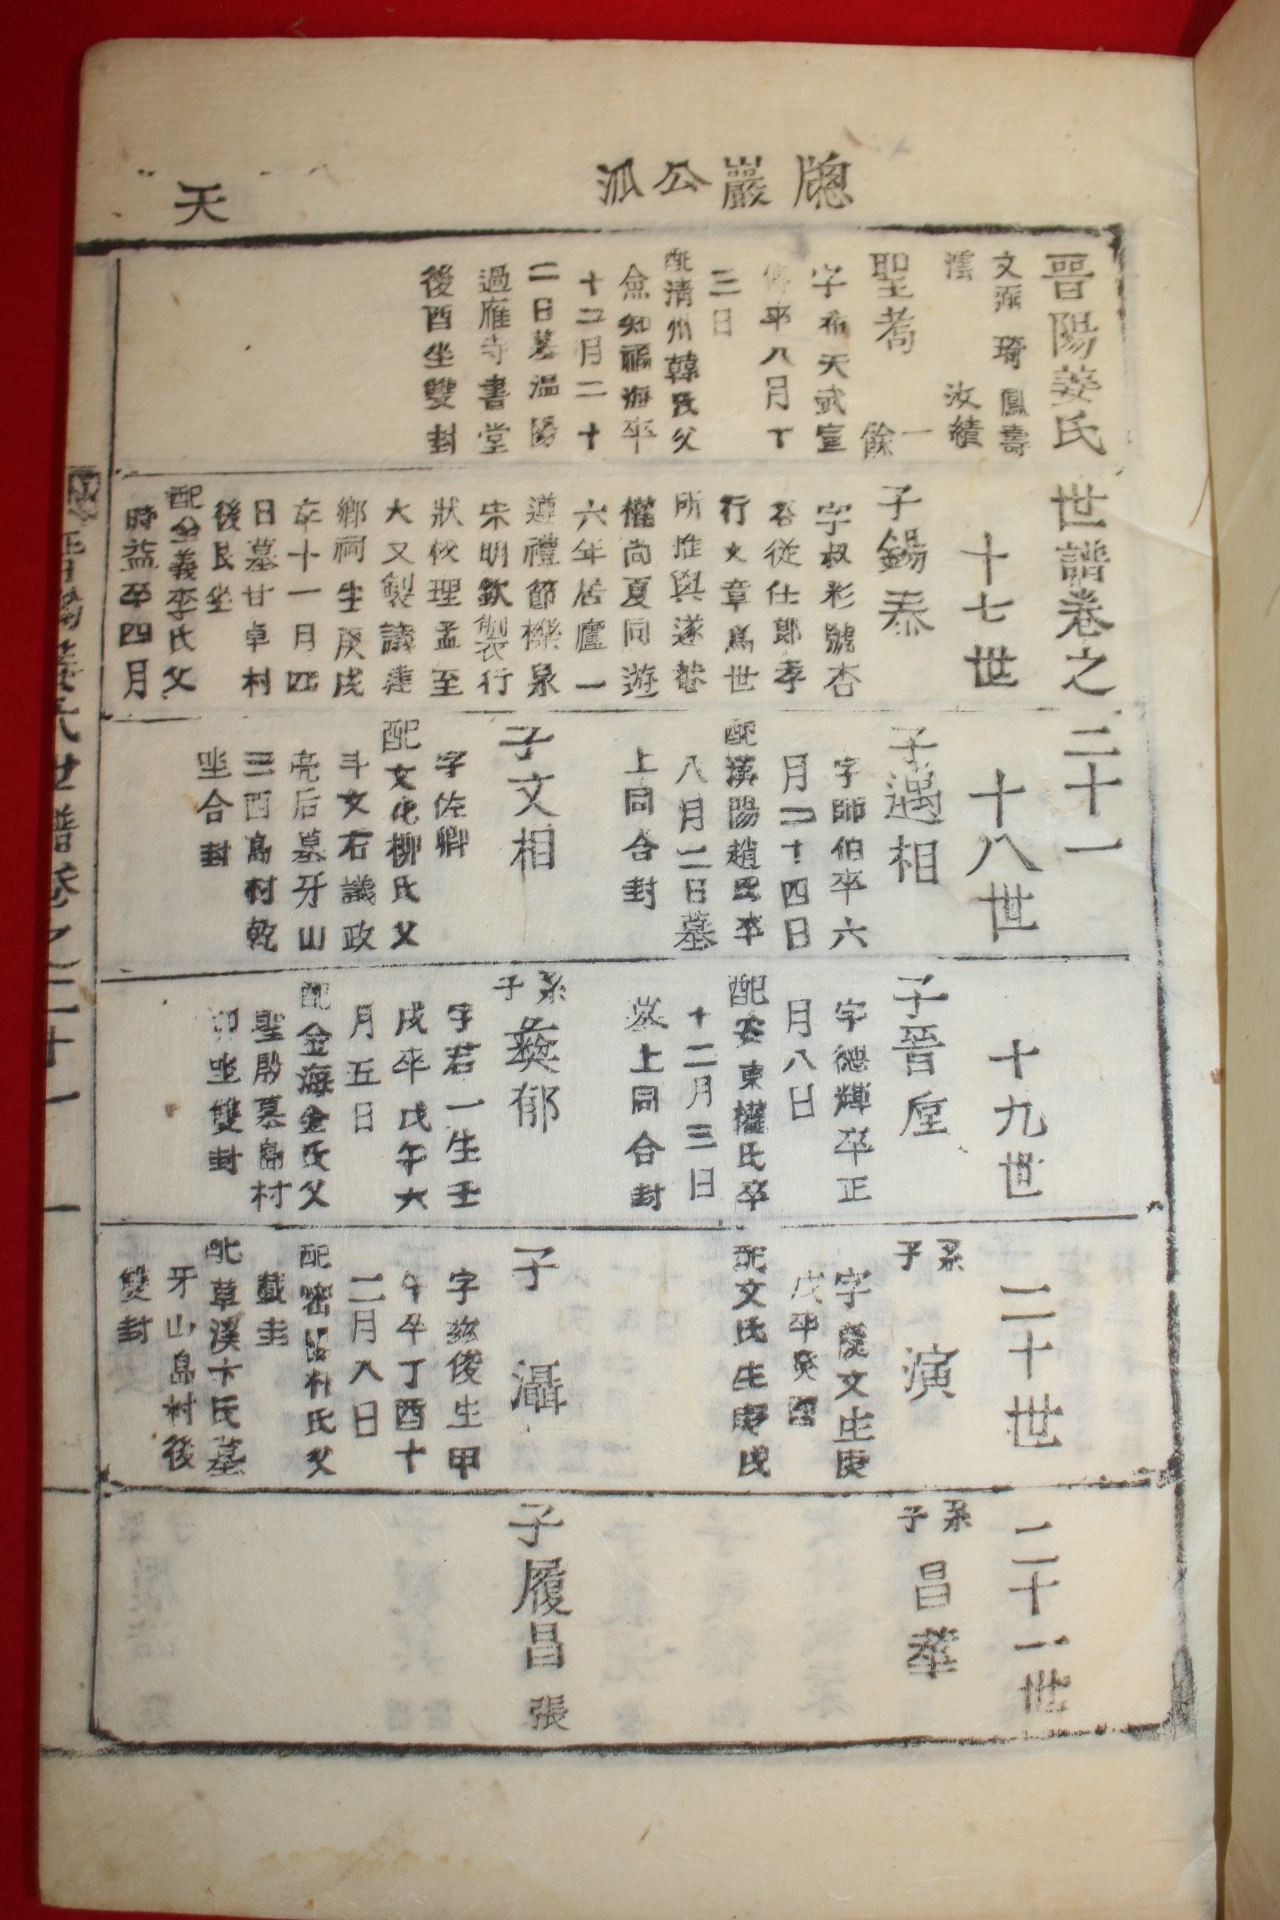 天
牕巖公派
晉陽姜氏世譜卷之二十一
文 琦 鳳壽
汝績
十七世
十八世
十九世
二十世
二十一世
聖耉
一餘
字希天武宣
傳卒八月丁
三日
配清州韓氏父
僉知 海卒
十二月二十
二日墓溫陽
過雁寺書堂
後酉坐雙封
子錫泰
字叔彩號杏
谷從仕郎孝
行文章爲世
所推與遂菴
權尚夏同遊
六年居廬一
遵禮節櫟泉
宋明欽製行
狀 理孟至
大又製 
鄉祠生庚戌
卒十一月四
日墓甘卓村
後艮坐
配全義李氏父
時益卒四月
子遇相
字師伯卒六
月二十四日
配漢陽趙氏卒
八月二日墓
上同合封
子文相
字佐卿
配文化柳氏父
斗文右議政
亮后墓牙山
三西島村乾
坐合封
子晉垕
字德輝卒正
月八日
配安東權氏卒
十二月三日
墓上同合封
系子彝郁
字君一生壬
戌卒戊午六
月五日
配金海金氏父
聖殷墓島村
卯坐雙封
系子演
字慶文生庚
戌卒癸
配文氏生庚戌
子灄
字 俊生甲
午卒丁酉十
二月八日
配密陽朴氏父
載圭
配草溪卞氏墓
牙山島村後
雙封
系子昌華
子履昌 張
晉陽姜氏世譜卷之二十一 一